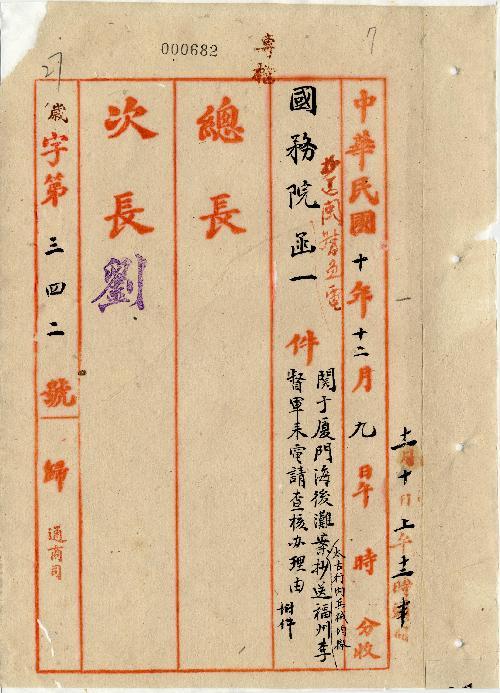 000682
專檔
7
27
中華民國十年十二月九日午 時 分收
國務院函一件
抄送閩督並電
關于厦門海後灘案抄送福州李
督軍来電請查核办理由
附件
總長
次長
劉
歲字第三四二號
歸
通商司
十二月十日上午十二時